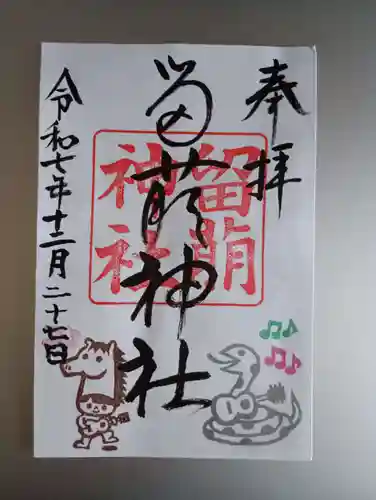 奉拝
留萠神社
留萠
神社
令和七年十二月二十七日